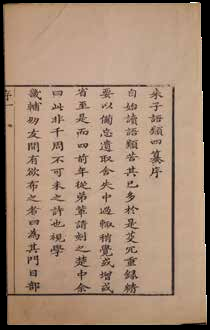 朱子語類四纂序
自始讀語類苦其已多於是芟冗重錄精
要以備忘遺取舍失中過輒稍覺或增或
省至是而四前年從弟葦請刻之楚中余
曰此非千周不可未之許也視學
畿輔朋友間有欲布之者曰為其門目部
序一